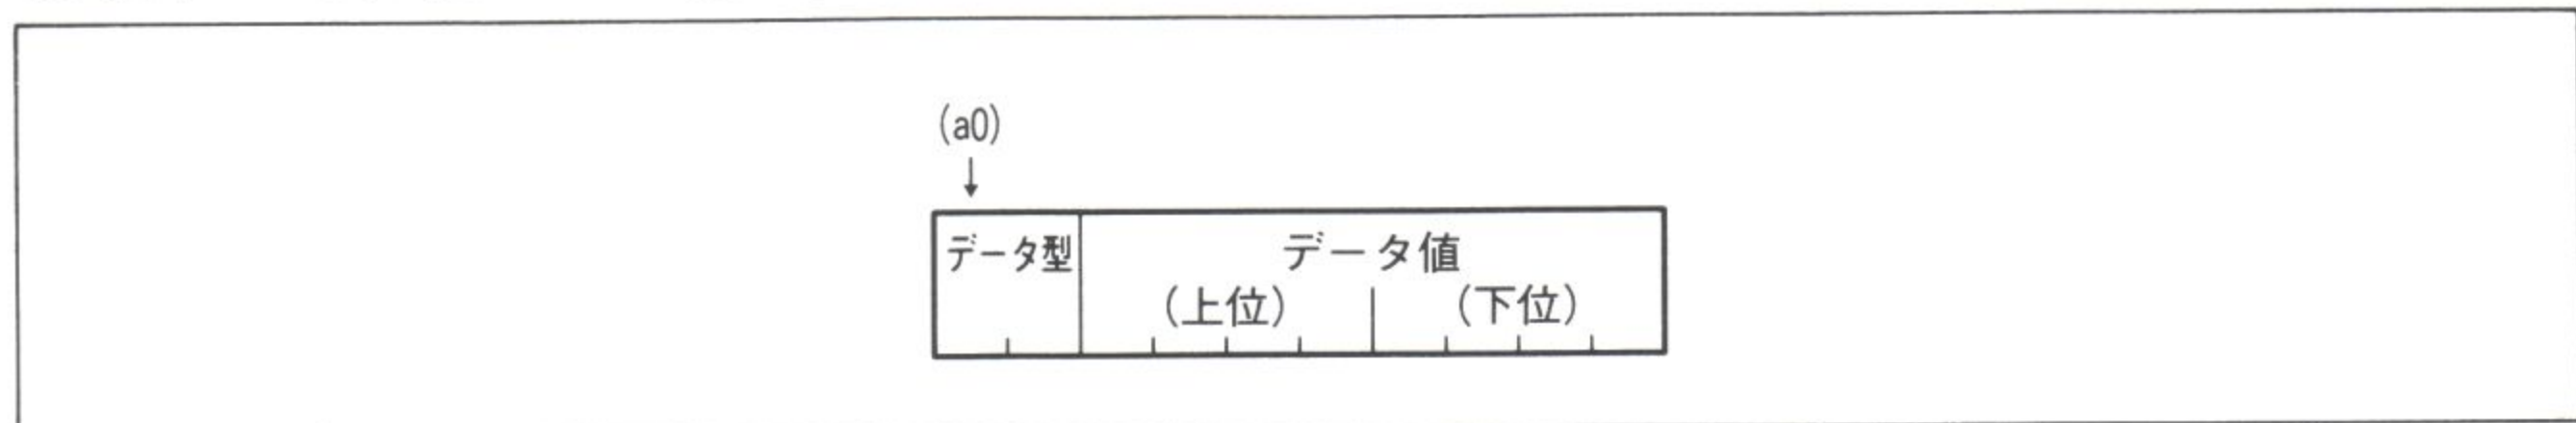 (a0)
データ型
データ値
(上位)
(下位)